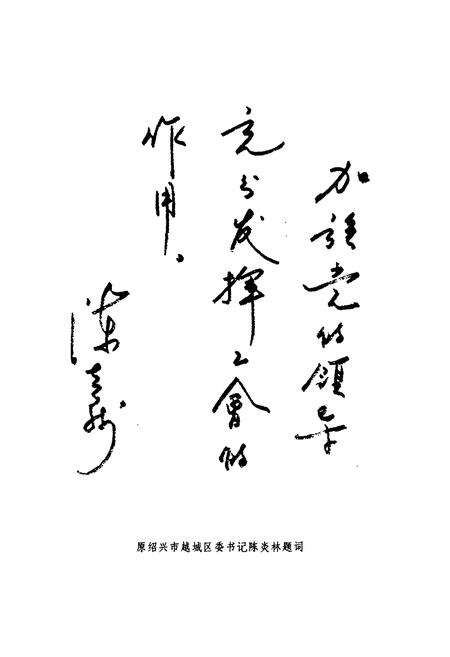 加强党的领导
充分发挥工会的
作用。
陈炎林
原绍兴市越城区委书记陈炎林题词